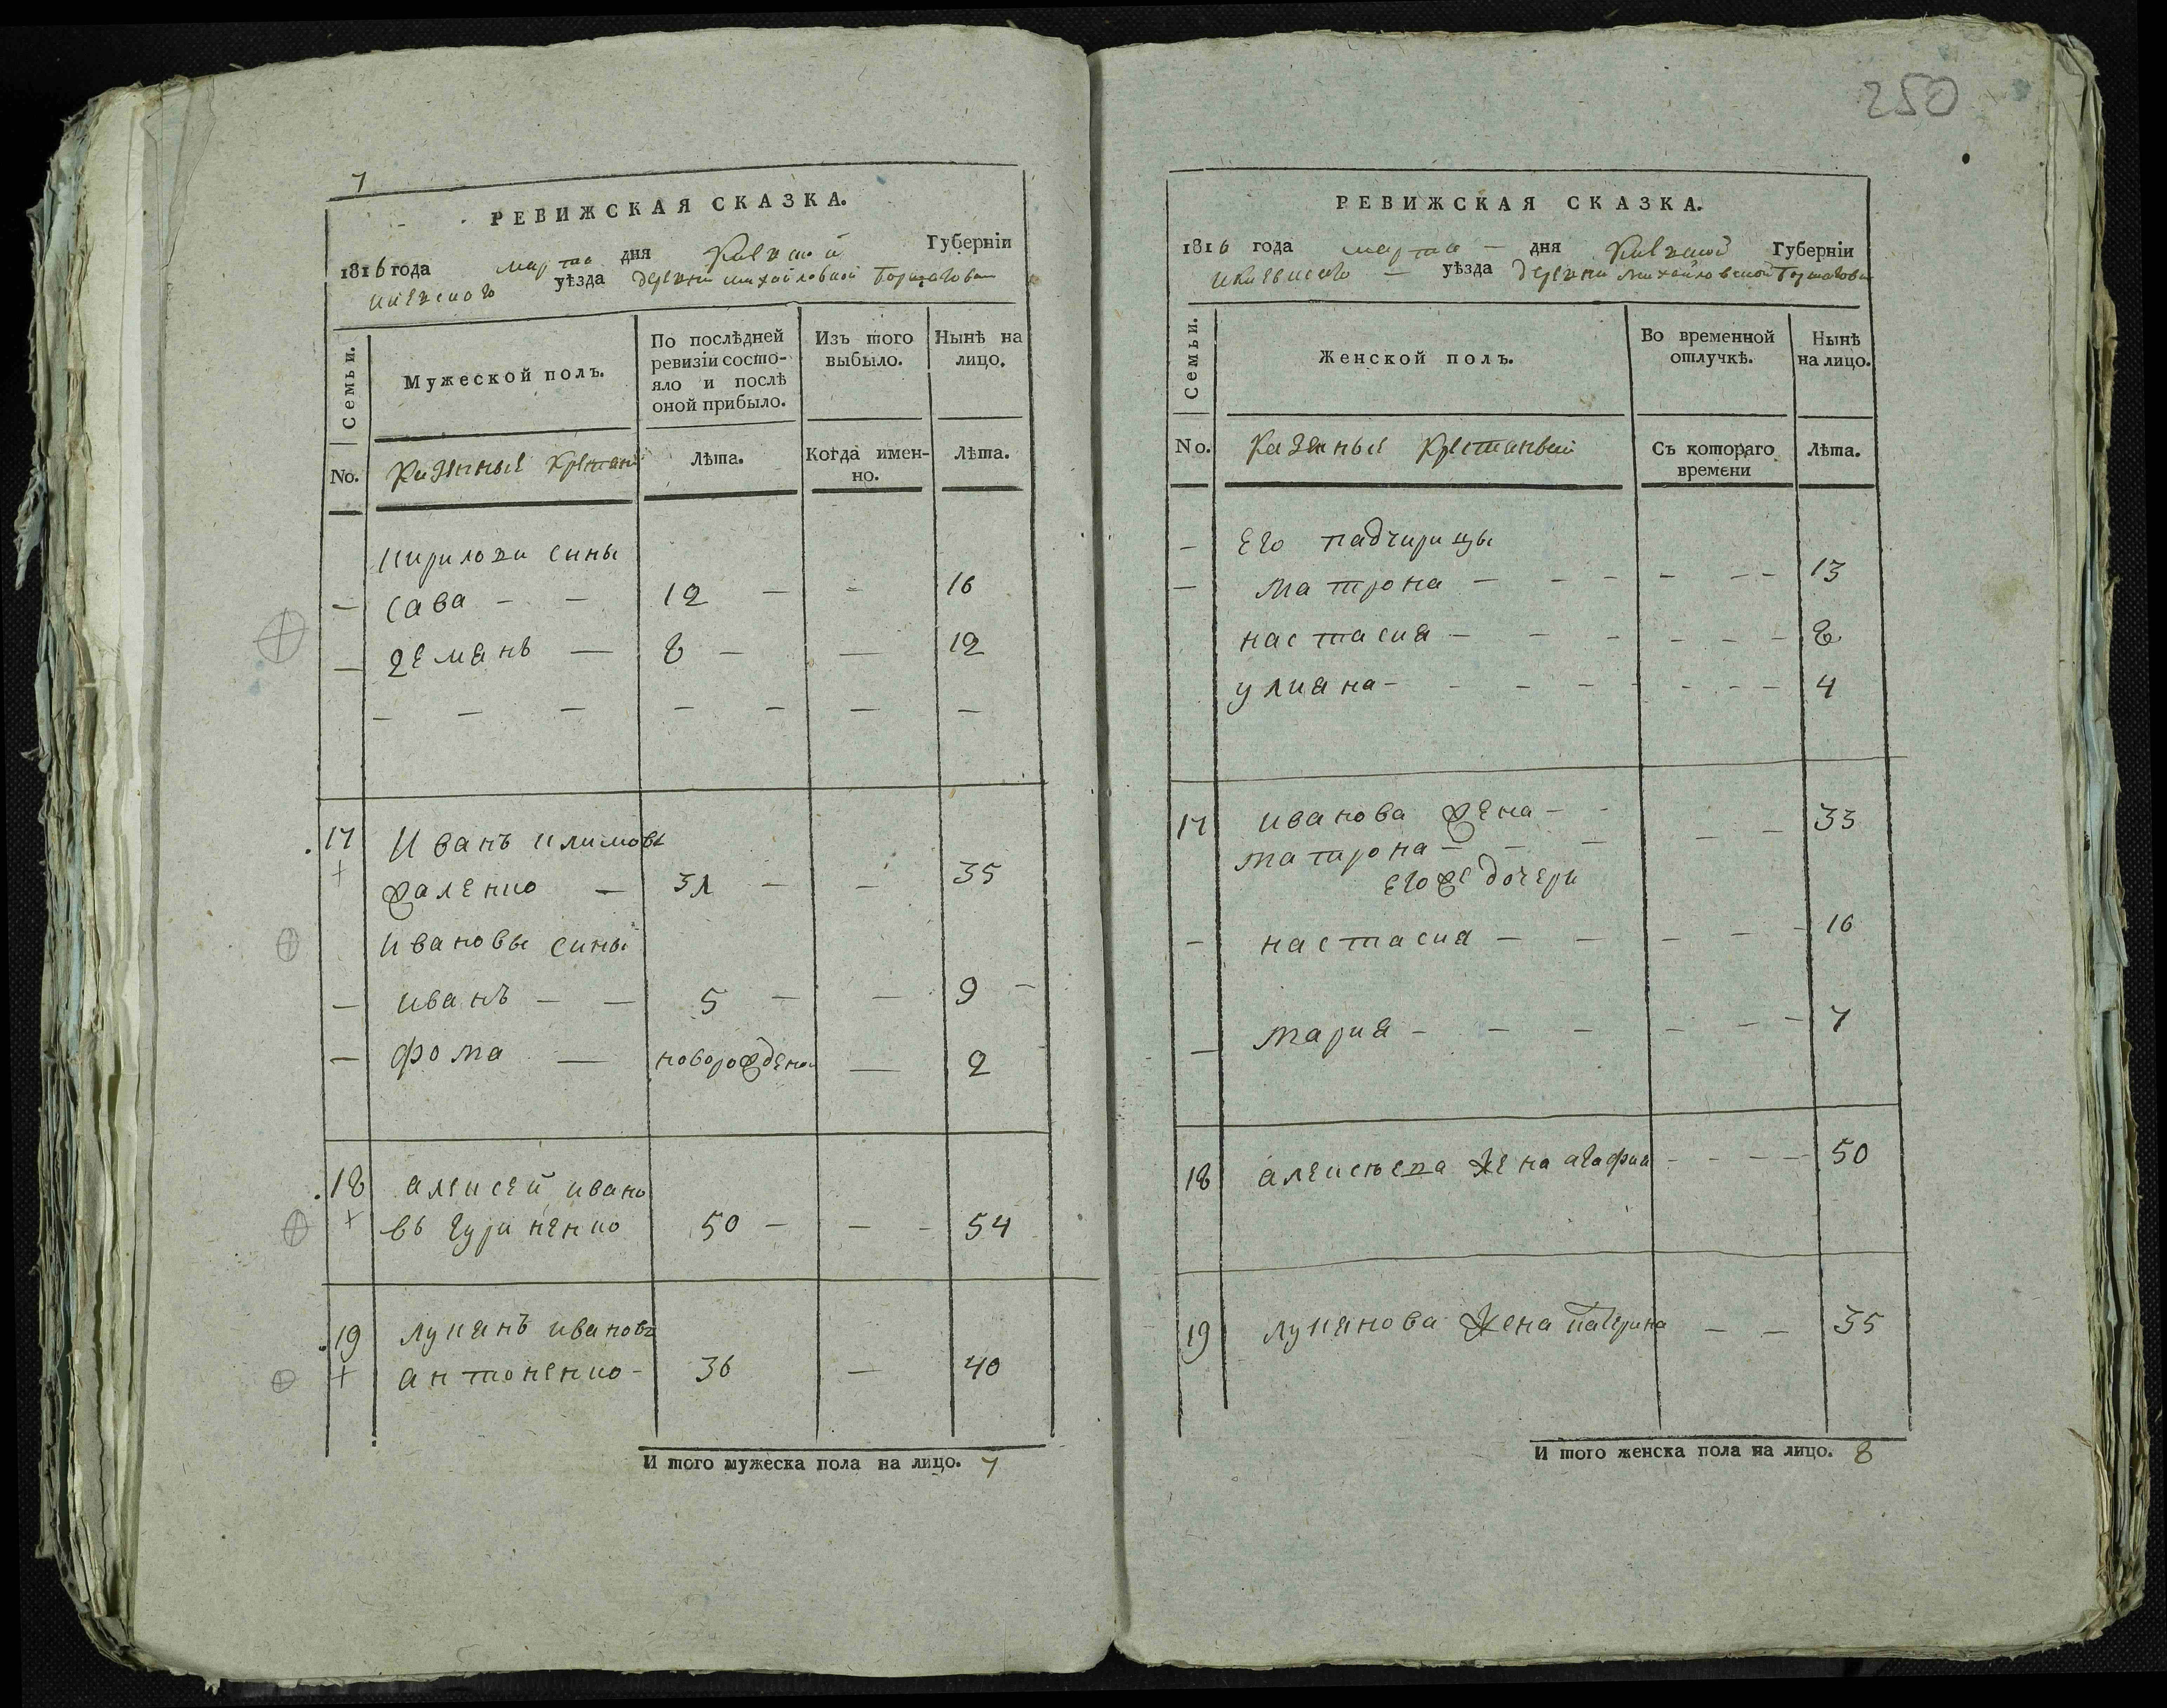 250
7
РЕВИЖСКАЯ СКАЗКА.
1816 года марта дня Киевской Губерніи
Киевского уѣзда деревни Михайловской
Семьи.
Мужеской полъ.
По послѣдней ревизіи состо-
яло и послѣ
оной прибыло.
Изъ того
выбыло.
Нынѣ на
лицо.
No.
Казенные
Лѣта.
Когда имен-
но.
Лѣта.
Кирилови сины
— Сава — — 12 — — 16
— Демянъ — 8 — — 12
— — — — — — —
17 Иванъ Климовъ
+ Жаленко — 31 — — 35
Ивановы сины
— иванъ — — 5 — — 9 —
— фома — новорожденой — 2
18 алексей ивано
+ въ гуриненко 50 — — — 54
19 лукянъ ивановъ
+ антоненко — 36 — 40
И того мужеска пола на лицо. 7
РЕВИЖСКАЯ СКАЗКА.
1816 года марта — дня Киевской Губерніи
Киевского — уѣзда деревни Михайловской
Семьи.
Женской полъ.
Во временной
отлучкѣ.
Нынѣ
на лицо.
No.
Казенные
Съ котораго
времени
Лѣта.
— Его падчирицы
— Матрона — — — — — — 13
настасия — — — — — — 8
улияна — — — — — — — — 4
17 иванова жена — —
матрона — — — — — 33
Его же дочери
— настасия — — — — — 16
— Мария — — — — — — 7
18 алексеева жена агафия — — — — 50
19 лукянова жена катерина — — 35
И того женска пола на лицо. 8